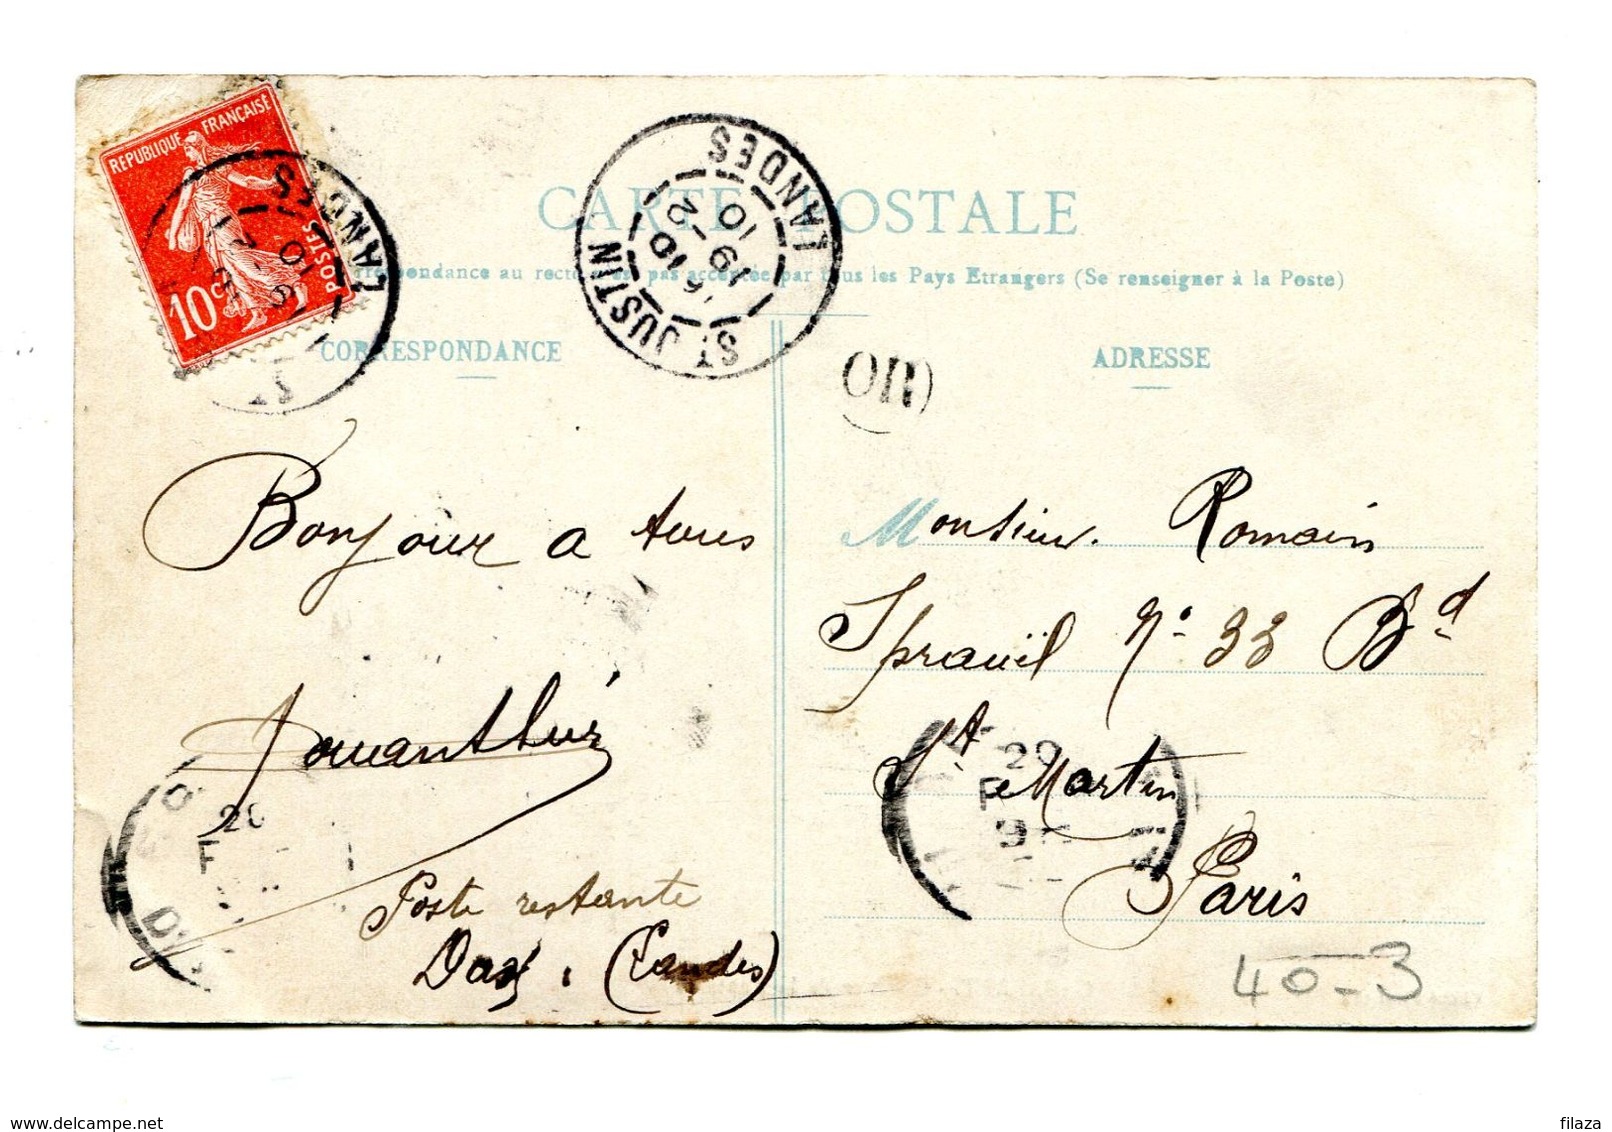 REPUBLIQUE FRANÇAISE
POSTES
10 c
LANDES
ST JUSTIN
LANDES
16 10
19 - 2
10
CARTE POSTALE
pas acceptée par tous les Pays Etrangers (Se renseigner à la Poste)
CORRESPONDANCE
ADRESSE
OR
Bonjour a tous
Poste restante
Dax. (Landes)
Monsieur. Romain
Spraüil No. 33 Bd
St Martin
Paris
20
20
40-3
www.delcampe.net
filaza